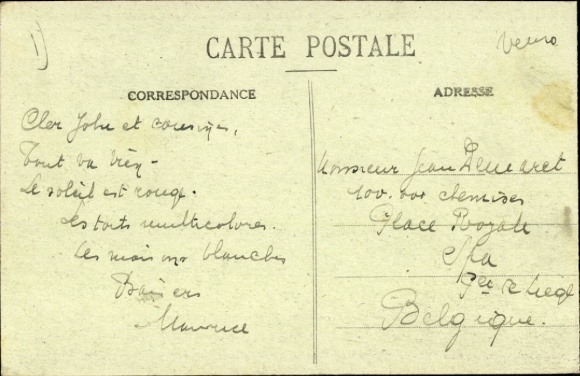 1)
CARTE POSTALE
CORRESPONDANCE
Cher John et cousines,
Tout va bien -
Le soleil est rouge.
Les toits multicolores.
Les maisons blanches
Baisers
Maurice
ADRESSE
Monsieur Jean Demaret
100.000 chemises
Place Royale
Spa
Pce de Liège
Belgique.